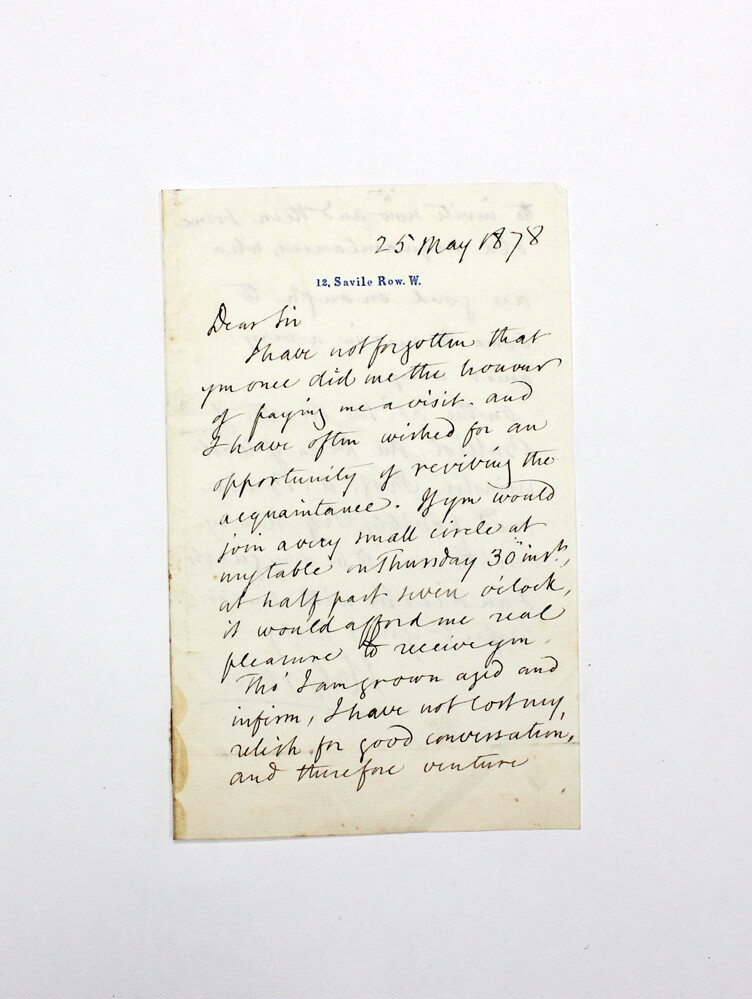 25 May 1878
12, Savile Row. W.
Dear Sir
I have not forgotten that
you once did me the honour
of paying me a visit. and
I have often wished for an
opportunity of reviving the
acquaintance. If you would
join a very small circle at
my table on Thursday 30th inst.,
at half past seven o'clock,
it would afford me real
pleasure to receive you.
Tho' I am grown aged and
infirm, I have not lost my
relish for good conversation,
and therefore venture